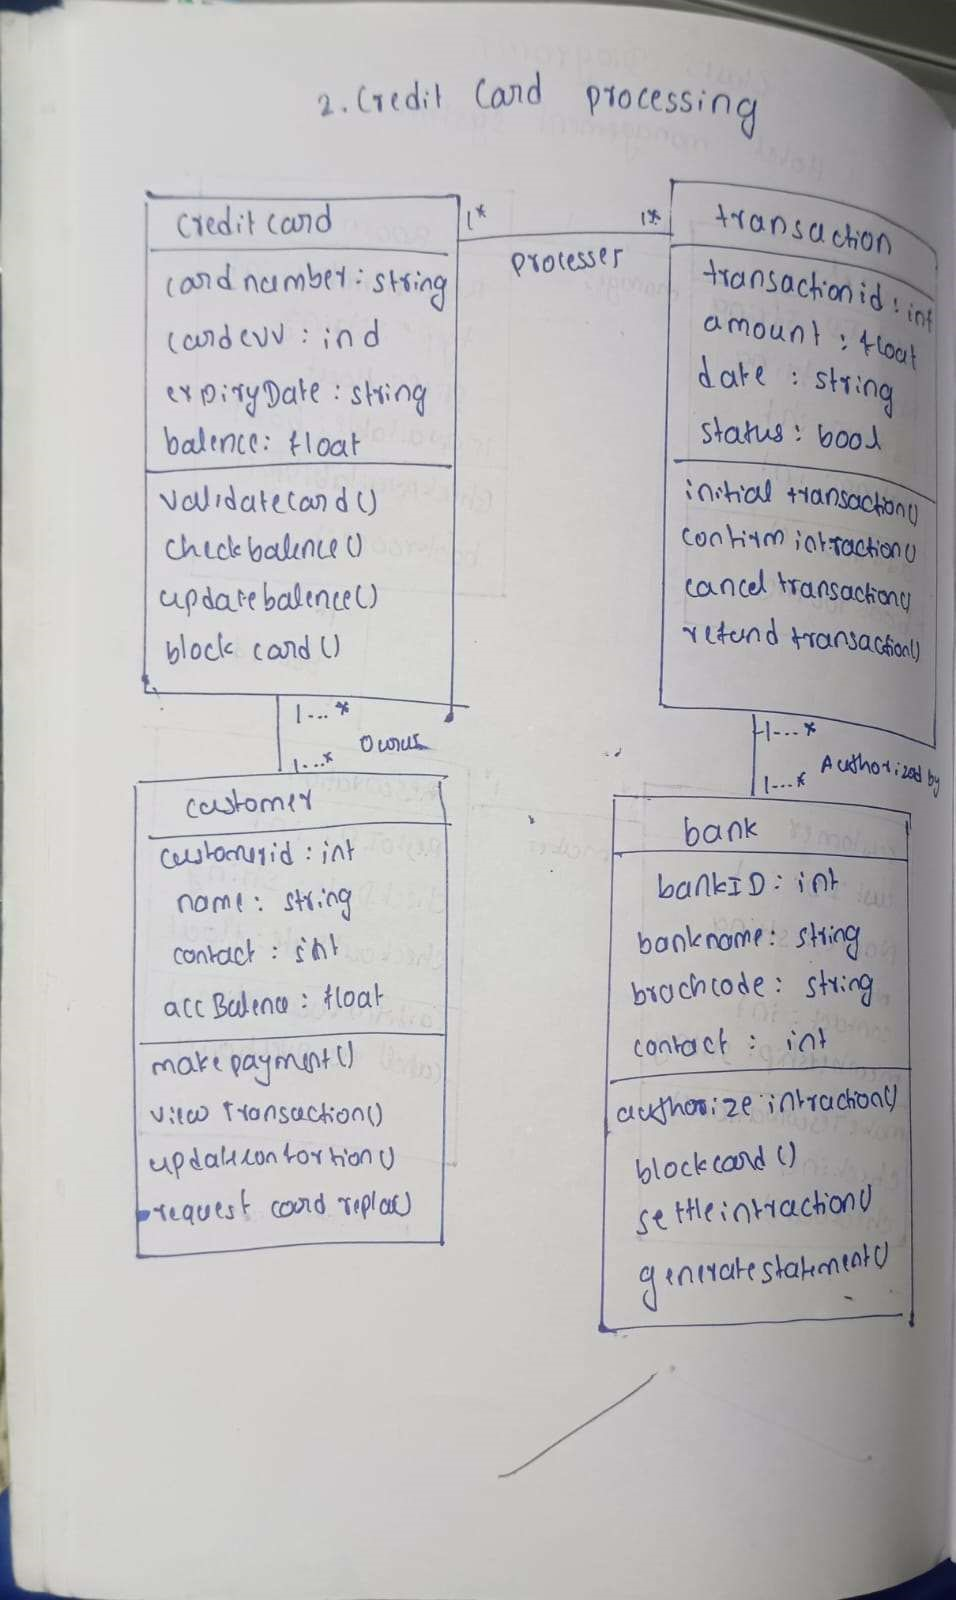 2. Credit Card processing
Credit card
card number : string
cardcvv : ind
expiryDate : string
balence : float
validatecard ()
check balence ()
update balence ()
block card ()
1*
1*
processer
transaction
transaction id : int
amount : float
date : string
status : bool
initial transaction()
confirm intraction()
cancel transaction()
refund transaction()
1...*
1...*
customer
customerid : int
name : string
contact : int
acc Balence : float
make payment ()
view Transaction()
request card replac()
1...*
Authorized by
1...*
bank
bankID : int
bankname : string
brachcode : string
contact : int
authorize intraction()
blockcard ()
settle intraction()
generate statement ()